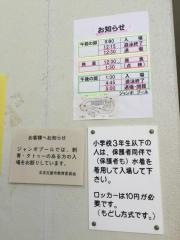 お知らせ
午前の部
9:00
入場
12:15
遊泳終了
12:30
退場
休憩
午後の部
1:30
入場
4:45
遊泳終了
5:00
お客様へお知らせ
ジャンボプールでは、刺
青・タトゥーのある方の入
場をお断りしています。
小学校3年生以下の
人は、保護者同伴で
(保護者も)水着を
着用して入場して下さ
い。
ロッカーは10円が必
要です。
(もどし方式です。)